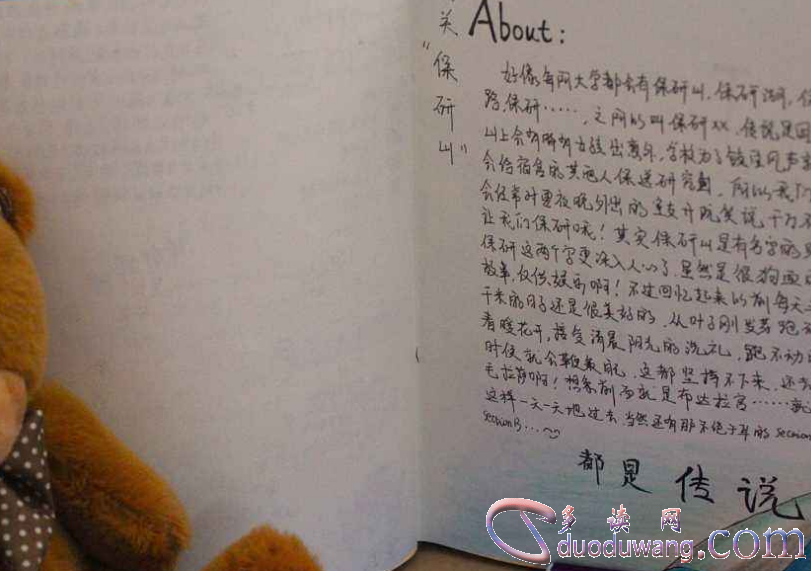 关
“保研山”
About:
好像每所大学都会有保研山、保研湖、
路、保研……，之所以叫保研XX，传说是因
山上会时 出意外，学校为了 风声
会给宿舍的其他人保送研究生，所以我们
会经常对 晚外出的 开玩笑说，千万
让我们保研呀！其实保研山是有名字的，
保研这两个字更深入人心了，虽然是很狗血
故事，仅供娱乐啊！不过回忆起来以前每天
的日子还是很美好的，从叶子刚发芽跑
春暖花开，接受清晨阳光的洗礼，跑不动
时候就会 ，这都坚持不下来，还
毛拉萨啊！想象前面就是布达拉宫……就
这样一天一天跑过去，当然还有那不绝于耳的section
sectionB…
都是传说
多读网
duoduwang.com